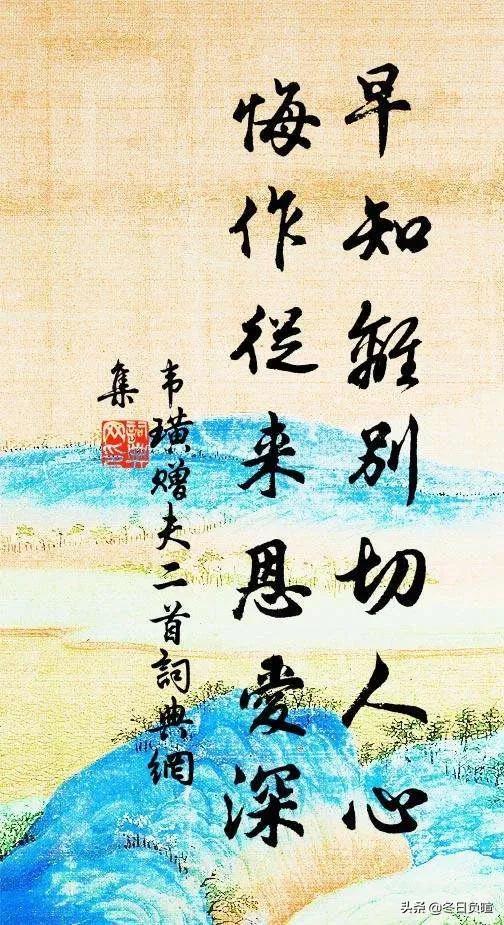 早知離別切人心
悔作從来恩愛深
韦璜赠夫二首詞典網
集
头条 @冬日负暄